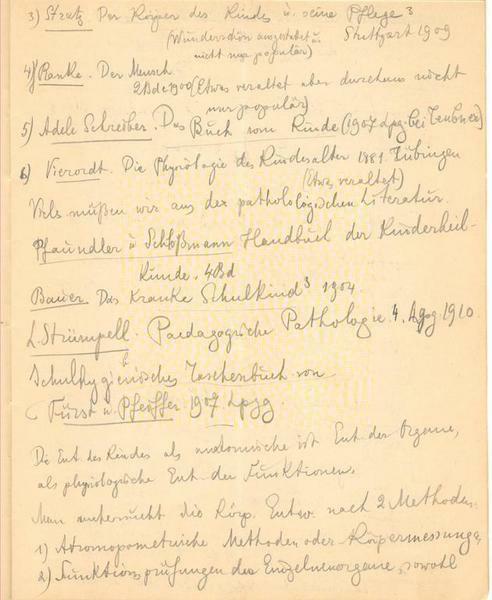 3) Stratz Der Körper des Kindes u. seine Pflege 3
(Wunderschön ausgestattet u. Stuttgart 1909
nicht nur populär)
4) Ranke. Der Mensch
2 Bde 1900 (Etwas veraltet aber durchaus nicht
nur populär)
5) Adele Schreiber. Das Buch vom Kinde (1907 Lpzg bei Teubner)
6) Vierordt. Die Physiologie des Kindesalter 1881 Tübingen
(Etwas veraltet)
Viels mußen wir aus der pathologischen Literatur.
Pfaundler u Schloßmann Handbuch der Kinderheil-
kunde. 4Bd
Bauer Das kranke Schulkind 3 1904.
L. Strümpell. Paedagogische Pathologie 4. 1910
Schulhygienisches Taschenbuch von
Fürst u. Pfeiffer 1907 Lpzg
Die Ent. des Kindes als anatomische ist Ent. der Organe,
als physiologische Ent. der Funktionen.
Man untersucht die Körp. Entw. nach 2 Methoden.
1) Antropometrische Methoden oder Körpermessung,
2) Funktionsprüfungen der Einzelnenorgane, sowohl